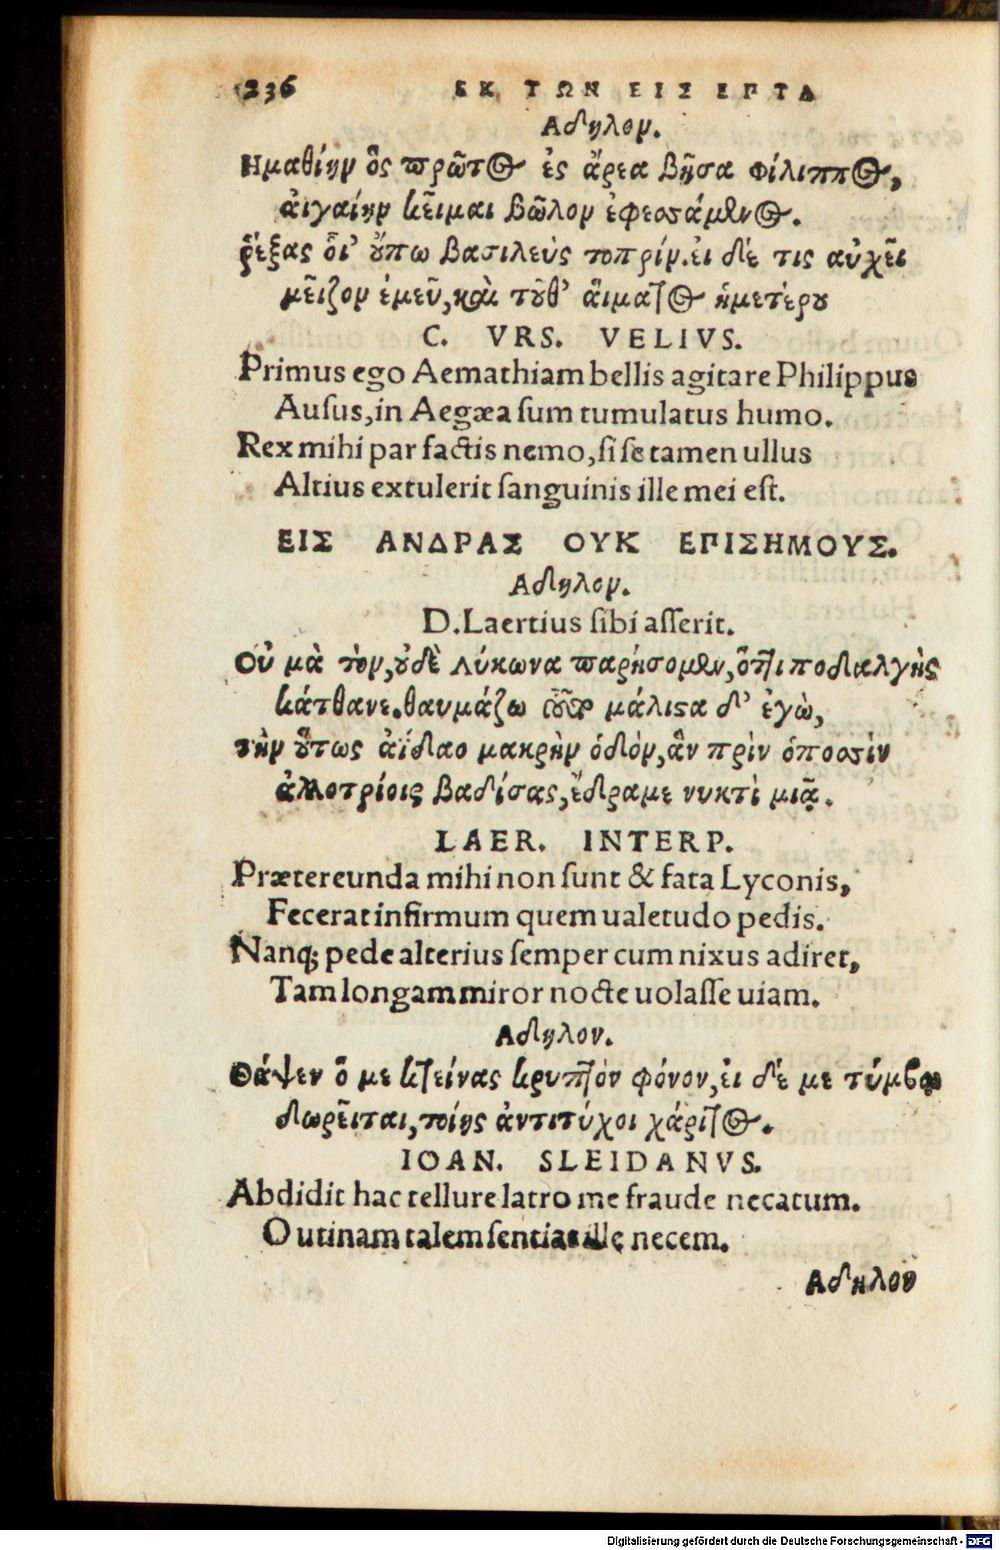 236 ΕΚ ΤΩΝ ΕΙΣ ΕΠΤΑ
Αδηλον.
Ημαθίην ὃς πρῶτος ἐς ἄρεα βῆσα Φίλιππος,
αἰγαίην κεῖμαι βῶλον ἐφεσσάμενος.
ῥέξας οἷ' οὔπω βασιλεὺς τοπρίν. εἰ δέ τις αὐχεῖ
μεῖζον ἐμεῦ, καὶ τοῦθ' αἵματος ἡμετέρου
C. VRS. VELIVS.
Primus ego Aemathiam bellis agitare Philippus
Ausus, in Aegæa sum tumulatus humo.
Rex mihi par factis nemo, si se tamen ullus
Altius extulerit sanguinis ille mei est.
ΕΙΣ ΑΝΔΡΑΣ ΟΥΚ ΕΠΙΣΗΜΟΥΣ.
Αδηλον.
D. Laertius sibi asserit.
Οὐ μὰ τὸν, οὐδὲ Λύκωνα παρήσομεν, ὅττι ποδαλγὴς
κάτθανε. θαυμάζω τοῦτο μάλιστα δ' ἐγὼ,
τὴν οὕτως ἀΐδαο μακρὴν ὁδὸν, ἂν πρὶν ὁ ποσσὶν
ἀλλοτρίοις βαδίσας, ἔδραμε νυκτὶ μιᾷ.
LAER. INTERP.
Prætereunda mihi non sunt & fata Lyconis,
Fecerat infirmum quem ualetudo pedis.
Nanq; pede alterius semper cum nixus adiret,
Tam longam miror nocte uolasse uiam.
Αδηλον.
Θάψεν ὅ με κτείνας κρυπτὸν φόνον, εἰ δέ με τύμβῳ
δωρεῖται, τοίης ἀντιτύχοι χάριτος.
IOAN. SLEIDANVS.
Abdidit hac tellure latro me fraude necatum.
O utinam talem sentiat ille necem.
Αδηλον
Digitalisierung gefördert durch die Deutsche Forschungsgemeinschaft - DFG